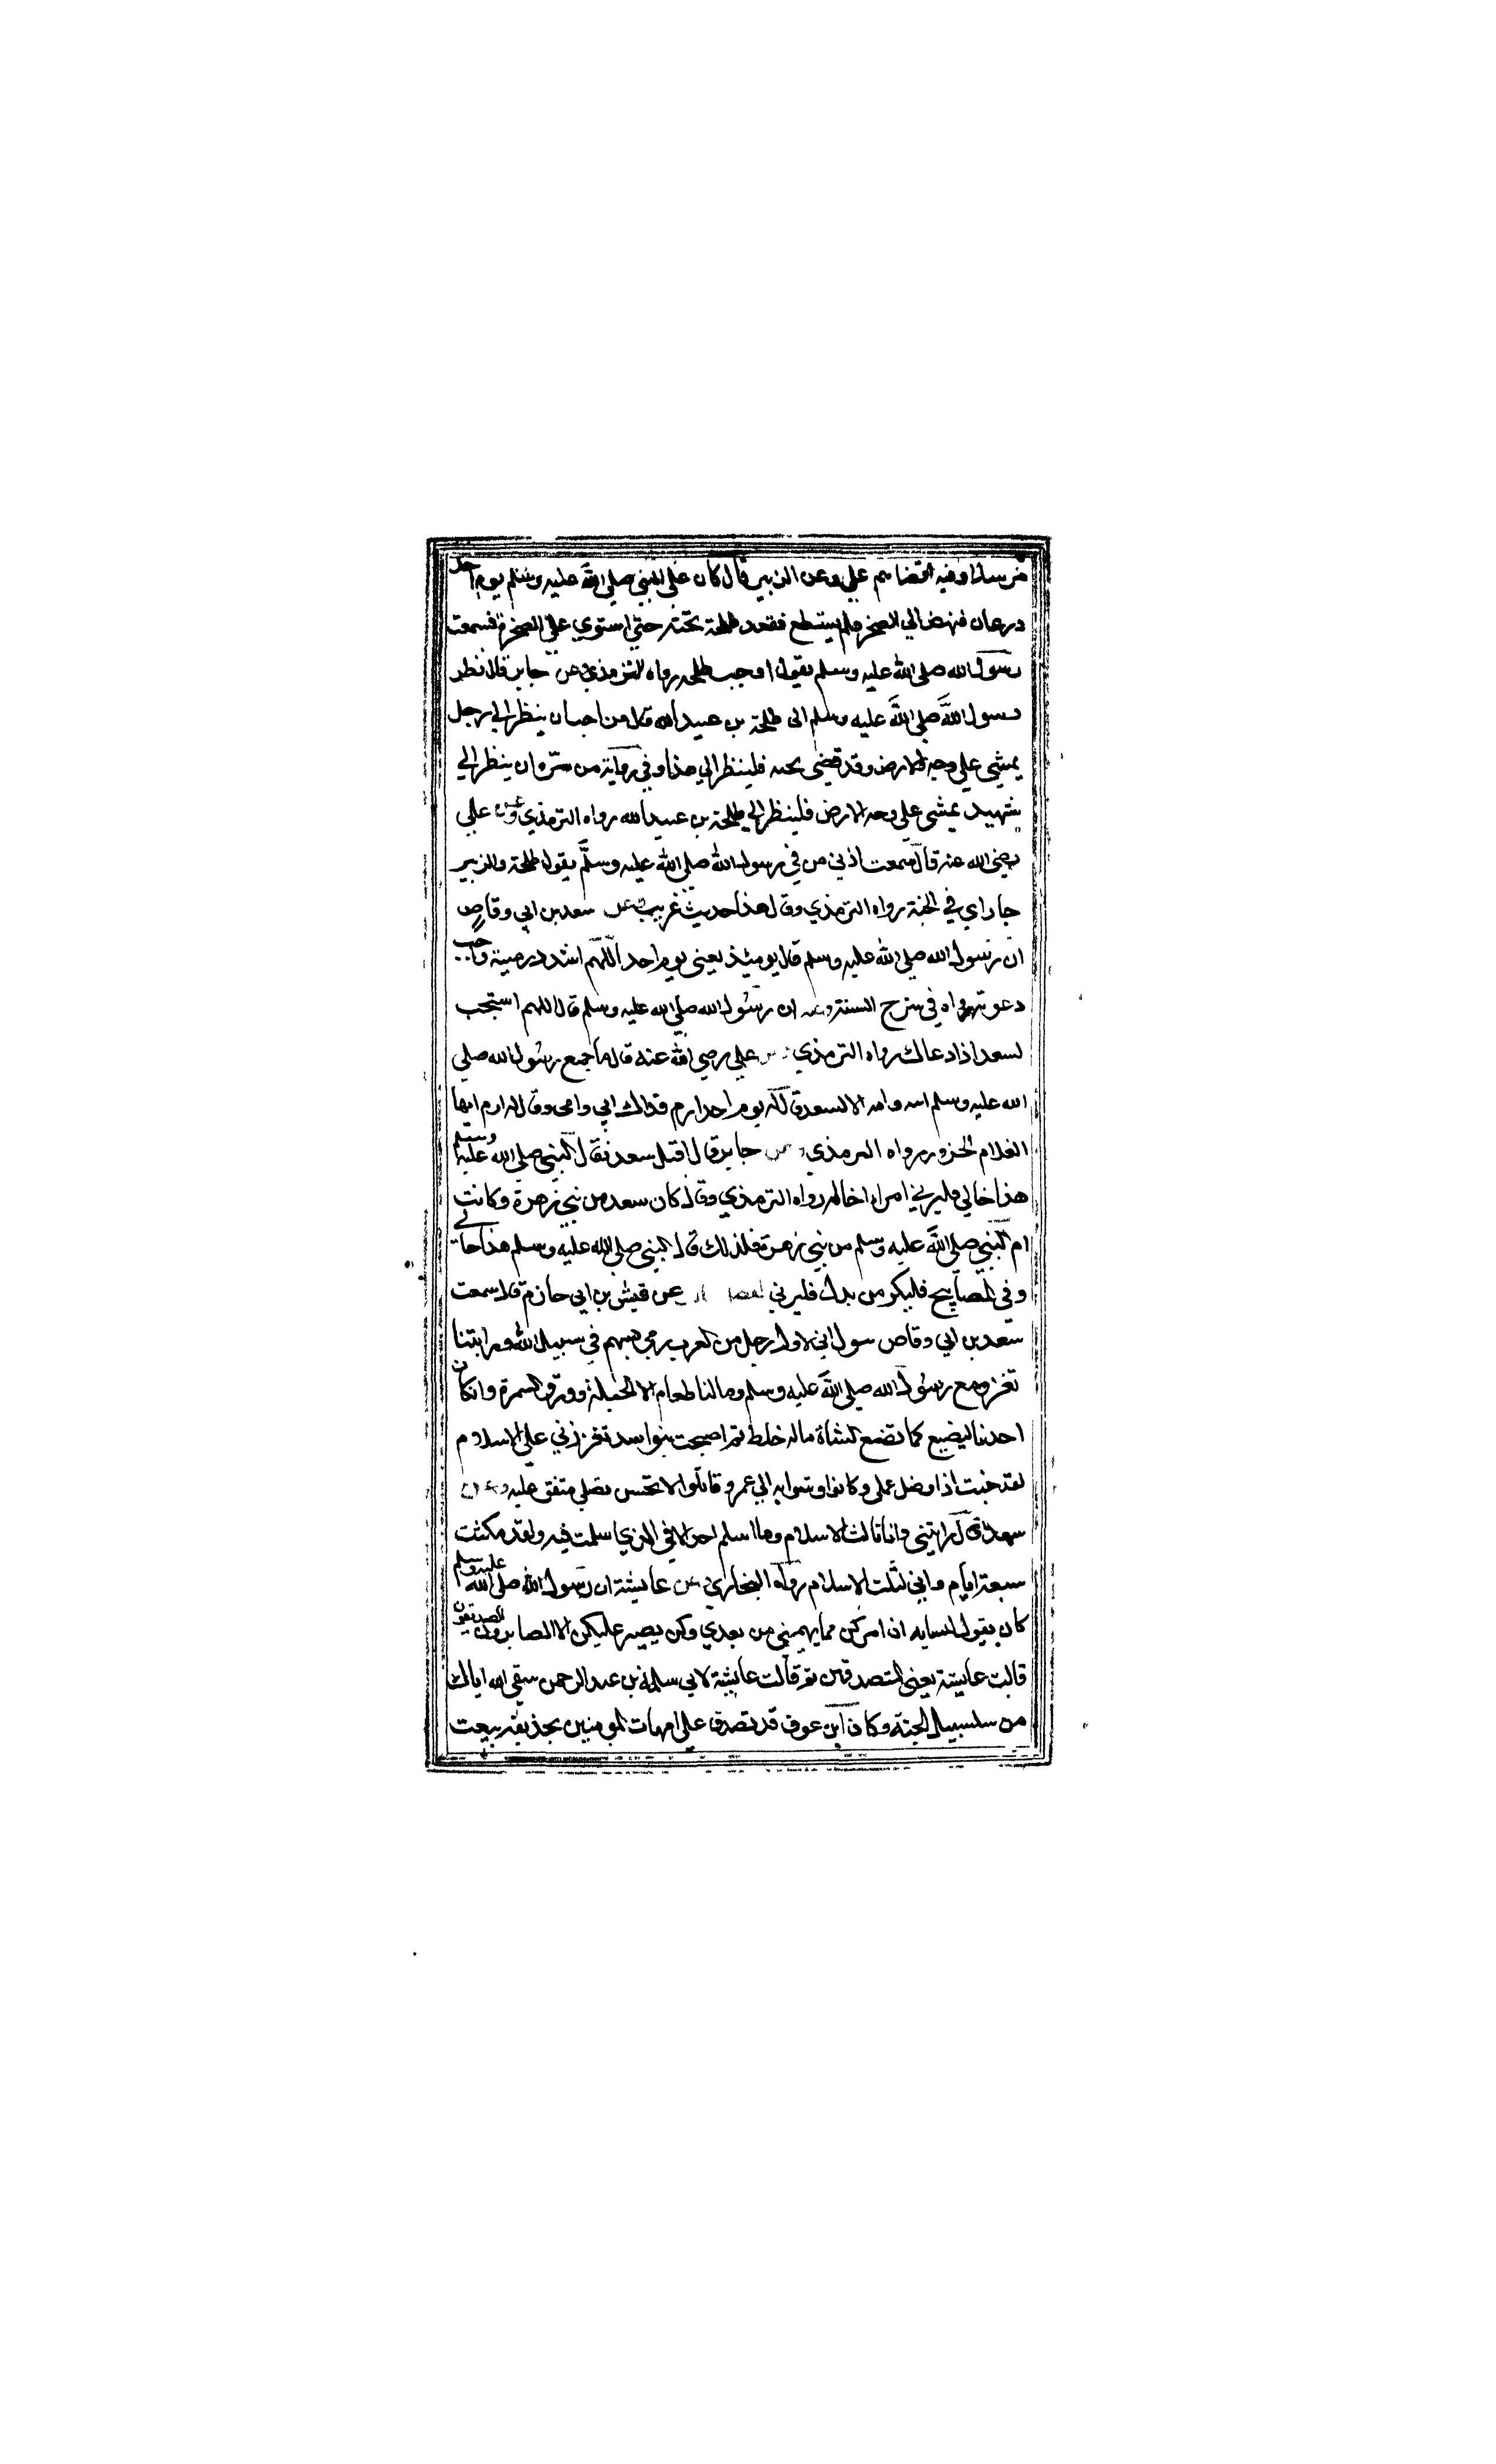 مرسلا وفيه اقضاهم علي وعن الزبير قال كان على النبي صلى الله عليه وسلم يوم احد
درعان فنهض الي الصخر فلم يستطع فقعد طلحة تحته حتي استوي علي الصخرة فسمعت
رسول الله صلى الله عليه وسلم يقول اوجب طلحه رواه الترمذي عن جابر قال نظر
رسول الله صلى الله عليه وسلم الى طلحة بن عبيد الله قال من احب ان ينظر الي رجل
يمشي علي وجه الارض وقد قضى نحبه فلينظر الي هذا وفي رواية من سره ان ينظر الي
شهيد يمشي علي وجه الارض فلينظر الي طلحة بن عبيد الله رواه الترمذي وعن علي
رضى الله عنه قال سمعت اذني من في رسول الله صلى الله عليه وسلم يقول طلحة والزبير
جاراي في الجنة رواه الترمذي وقال هذا حديث غريب وعن سعد بن ابي وقاص
ان رسول الله صلى الله عليه وسلم قال يومئذ يعنى يوم احد اللهم اشدد رميته واجب
دعوته رواه في شرح السنة وعنه ان رسول الله صلى الله عليه وسلم قال اللهم استجب
لسعد اذا دعاك رواه الترمذي وعن علي رضي الله عنه قال ما جمع رسول الله صلي
الله عليه وسلم ابه وامه الا لسعد قال له يوم احد ارم فداك ابي وامى وقال له ارم ايها
الغلام الحزور رواه الترمذي وعن جابر قال اقبل سعد فقال النبي صلى الله عليه وسلم
هذا خالي فليرني امراء خاله رواه الترمذي وقال كان سعد من بني زهرة وكانت
ام النبي صلى الله عليه وسلم من بني زهرة فلذلك قال النبي صلى الله عليه وسلم هذا خالي
وفي المصابيح فليكرمن بدل فليرني عن قيس بن ابي حازم قال سمعت
سعد بن ابي وقاص يقول اني لاول رجل من العرب رمي بسهم في سبيل الله ورايتنا
نغزو مع رسول الله صلى الله عليه وسلم وما لنا طعام الا الحبلة وورق السمرة وان كان
احدنا ليضع كما تضع الشاة ماله خلط ثم اصبحت بنوا سد تعزرني علي الاسلام
لقد خبت اذا وضل عملي وكانوا وشوا به الي عمرو قالوا لا تحسن يصلي متفق عليه وعن
سعد قال رايتني وانا ثالث الاسلام وما اسلم احد الا في الذي اسلمت فيه ولقد مكثت
سبعة ايام واني لثلث الاسلام رواه البخاري وعن عايشة ان رسول الله صلى الله عليه وسلم
كان يقول لنسايه ان امركن مما يهمني من بعدي ولن يصبر عليكن الا الصابرون الصديقون
قالت عايشة يعني المتصدقين ثم قالت عايشة لابي سلمة بن عبد الرحمن سقى الله اباك
من سلسبيل الجنة وكان ابن عوف قد تصدق علي امهات المومنين بحديقة بيعت